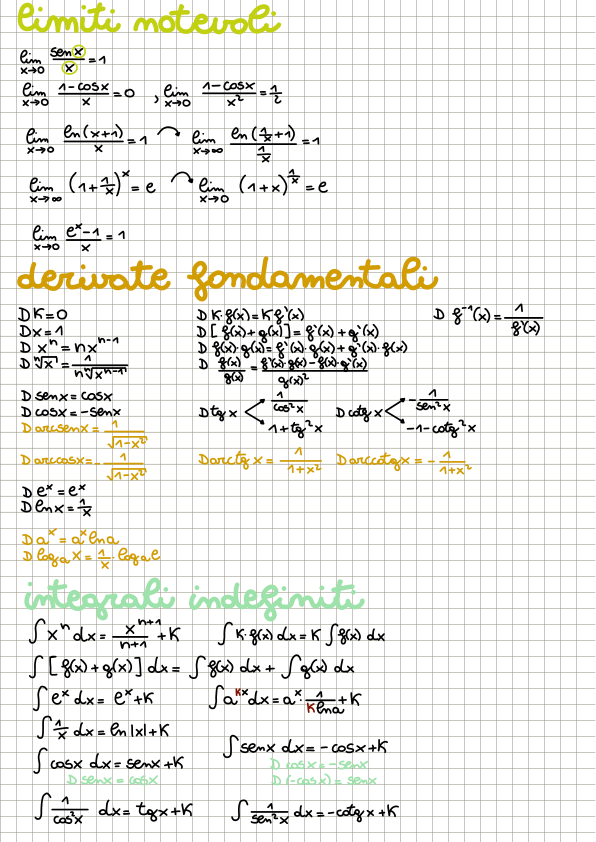 limiti notevoli
lim x→0 senx/x = 1
lim x→0 (1-cosx)/x = 0 , lim x→0 (1-cosx)/x² = 1/2
lim x→0 ln(x+1)/x = 1 lim x→∞ ln(1/x+1)/(1/x) = 1
lim x→∞ (1+1/x)^x = e lim x→0 (1+x)^(1/x) = e
lim x→0 (e^x-1)/x = 1
derivate fondamentali
D K=0 D K·f(x)=K f'(x) D f⁻¹(x)= 1/f'(x)
Dx=1 D[f(x)+g(x)]= f'(x)+g'(x)
D xⁿ = nxⁿ⁻¹ D f(x)·g(x)= f'(x)·g(x)+g'(x)·f(x)
D ⁿ√x = 1/(n ⁿ√xⁿ⁻¹) D f(x)/g(x) = (f'(x)·g(x)-f(x)·g'(x))/g(x)²
D senx = cosx
D cosx = -senx D tgx 1/cos²x 1+tg²x D cotgx -1/sen²x -1-cotg²x
D arcsenx = 1/√(1-x²)
D arccosx = -1/√(1-x²) D arctg x = 1/(1+x²) D arccotgx = -1/(1+x²)
D e^x = e^x
D lnx = 1/x
D a^x = a^x lna
D log_a x = 1/x · log_a e
integrali indefiniti
∫ xⁿ dx = xⁿ⁺¹/(n+1) + K ∫ K·f(x) dx = K ∫ f(x) dx
∫ [f(x)+g(x)] dx = ∫ f(x) dx + ∫ g(x) dx
∫ e^x dx = e^x+K ∫ a^(Kx) dx = a^x · 1/(K lna) + K
∫ 1/x dx = ln|x|+K
∫ cosx dx = senx+K ∫ senx dx = -cosx+K
D senx = cosx D cosx = -senx
D(-cosx) = senx
∫ 1/cos²x dx = tgx+K ∫ 1/sen²x dx = -cotgx+K